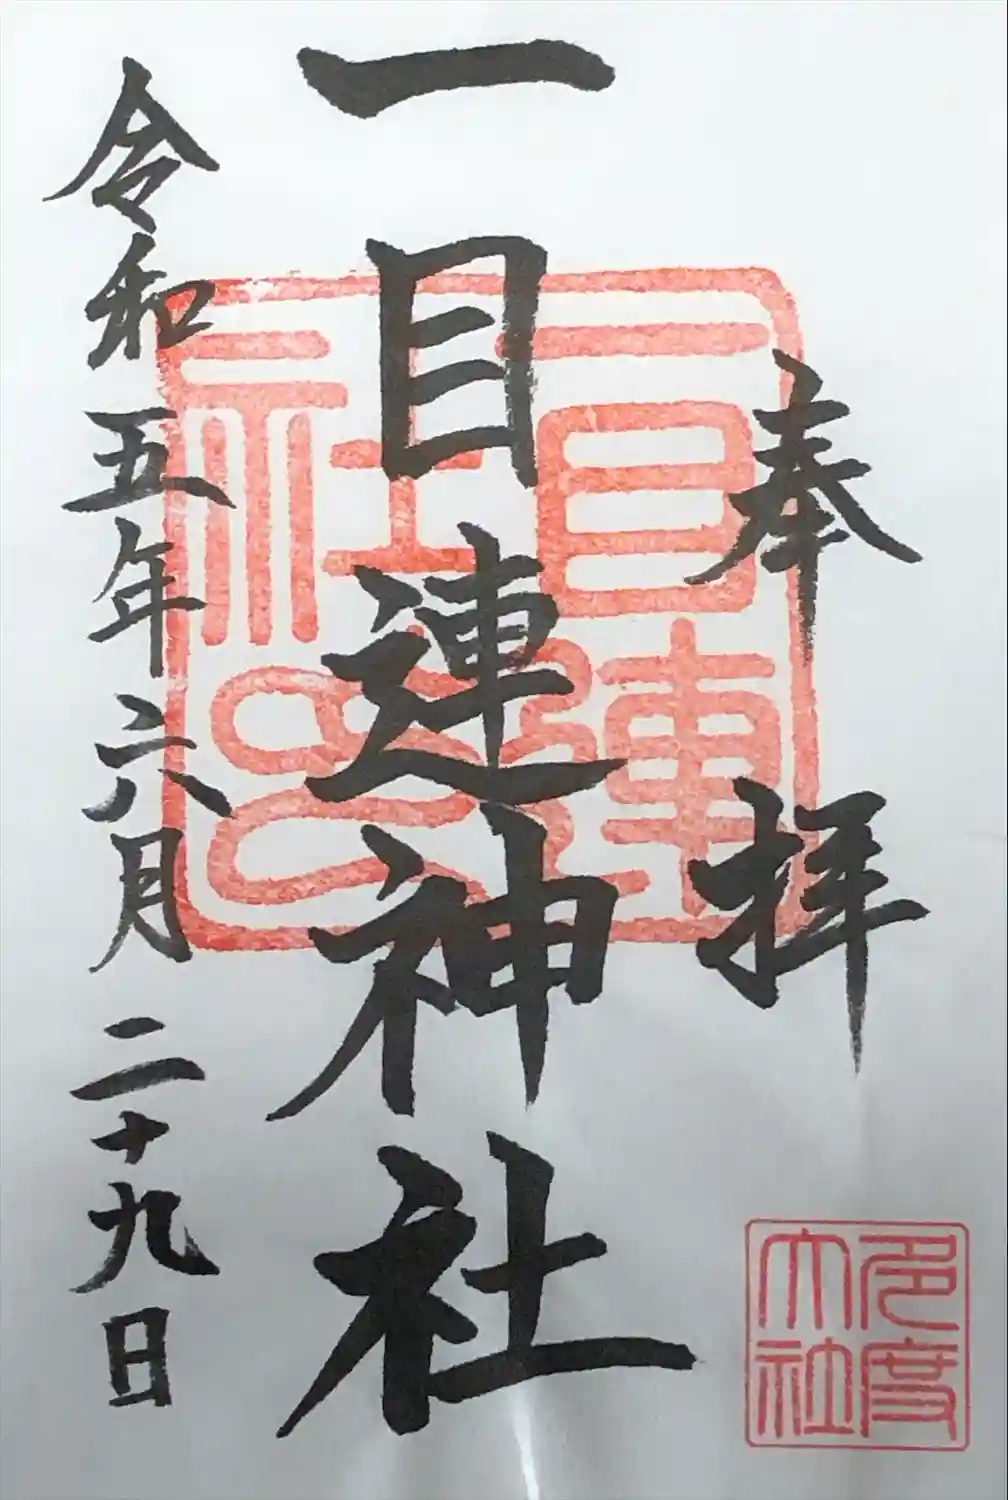 奉拝
一目連神社
令和五年六月二十九日
一目連社之印
多度大社